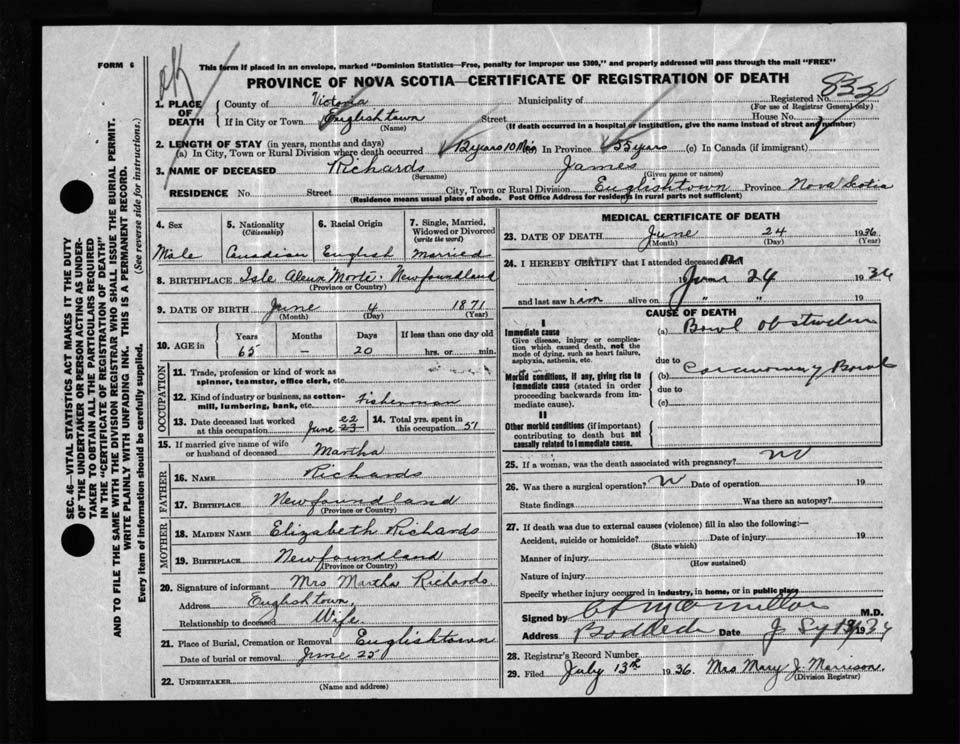 ok
FORM 6
This form if placed in an envelope, marked "Dominion Statistics—Free, penalty for improper use $300," and properly addressed will pass through the mail "FREE"
PROVINCE OF NOVA SCOTIA—CERTIFICATE OF REGISTRATION OF DEATH
Registered No.
(For use of Registrar General only)
1. PLACE OF DEATH
County of Victoria Municipality of
If in City or Town Englishtown Street House No.
(Name) (If death occurred in a hospital or institution, give the name instead of street and number)
2. LENGTH OF STAY (in years, months and days)
(a) In City, Town or Rural Division where death occurred 12 years 10 Mos (b) In Province 55 years (c) In Canada (if immigrant)
3. NAME OF DECEASED Richards James
(Surname) (Given name or names)
RESIDENCE No. Street City, Town or Rural Division Englishtown Province Nova Scotia
(Residence means usual place of abode. Post Office Address for residents in rural parts not sufficient)
SEC. 46—VITAL STATISTICS ACT MAKES IT THE DUTY
OF THE UNDERTAKER OR PERSON ACTING AS UNDER-
TAKER TO OBTAIN ALL THE PARTICULARS REQUIRED
IN THE "CERTIFICATE OF REGISTRATION OF DEATH"
AND TO FILE THE SAME WITH THE DIVISION REGISTRAR WHO SHALL ISSUE THE BURIAL PERMIT.
WRITE PLAINLY WITH UNFADING INK. THIS IS A PERMANENT RECORD.
Every item of information should be carefully supplied. (See reverse side for instructions.)
4. Sex 5. Nationality (Citizenship) 6. Racial Origin 7. Single, Married, Widowed or Divorced (write the word)
Male Canadian English Married
8. BIRTHPLACE Isle Newfoundland
(Province or Country)
9. DATE OF BIRTH June 4 1871
(Month) (Day) (Year)
10. AGE in Years Months Days If less than one day old
65 — 20 hrs. or min.
OCCUPATION
11. Trade, profession or kind of work as
spinner, teamster, office clerk, etc.
12. Kind of industry or business, as cotton-
mill, lumbering, bank, etc. Fisherman
13. Date deceased last worked
at this occupation June 22 23
14. Total yrs. spent in
this occupation 51
15. If married give name of wife
or husband of deceased Martha
FATHER
16. NAME Richards
17. BIRTHPLACE Newfoundland
(Province or Country)
MOTHER
18. MAIDEN NAME Elizabeth Richards
19. BIRTHPLACE Newfoundland
(Province or Country)
20. Signature of informant Mrs Martha Richards
Address Englishtown
Relationship to deceased Wife
21. Place of Burial, Cremation or Removal Englishtown
Date of burial or removal June 25
22. UNDERTAKER
(Name and address)
MEDICAL CERTIFICATE OF DEATH
23. DATE OF DEATH June 24 1936
(Month) (Day) (Year)
24. I HEREBY CERTIFY that I attended deceased
June 24 1936
and last saw him alive on " " 19
CAUSE OF DEATH
I
Immediate cause
Give disease, injury or complica-
tion which caused death, not the
mode of dying, such as heart failure,
asphyxia, asthenia, etc.
(a) Bowl
due to
Morbid conditions, if any, giving rise to
immediate cause (stated in order
proceeding backwards from im-
mediate cause).
(b) Bowl
due to
(c)
II
Other morbid conditions (if important)
contributing to death but not
causally related to immediate cause.
25. If a woman, was the death associated with pregnancy? no
26. Was there a surgical operation? Date of operation 19
State findings Was there an autopsy?
27. If death was due to external causes (violence) fill in also the following:—
Accident, suicide or homicide? Date of injury 19
(State which)
Manner of injury
(How sustained)
Nature of injury
Specify whether injury occurred in industry, in home, or in public place
Signed by M.D.
Address Date 1936
28. Registrar's Record Number
29. Filed July 13th 1936. Mrs Mary J. Morrison.
(Division Registrar)